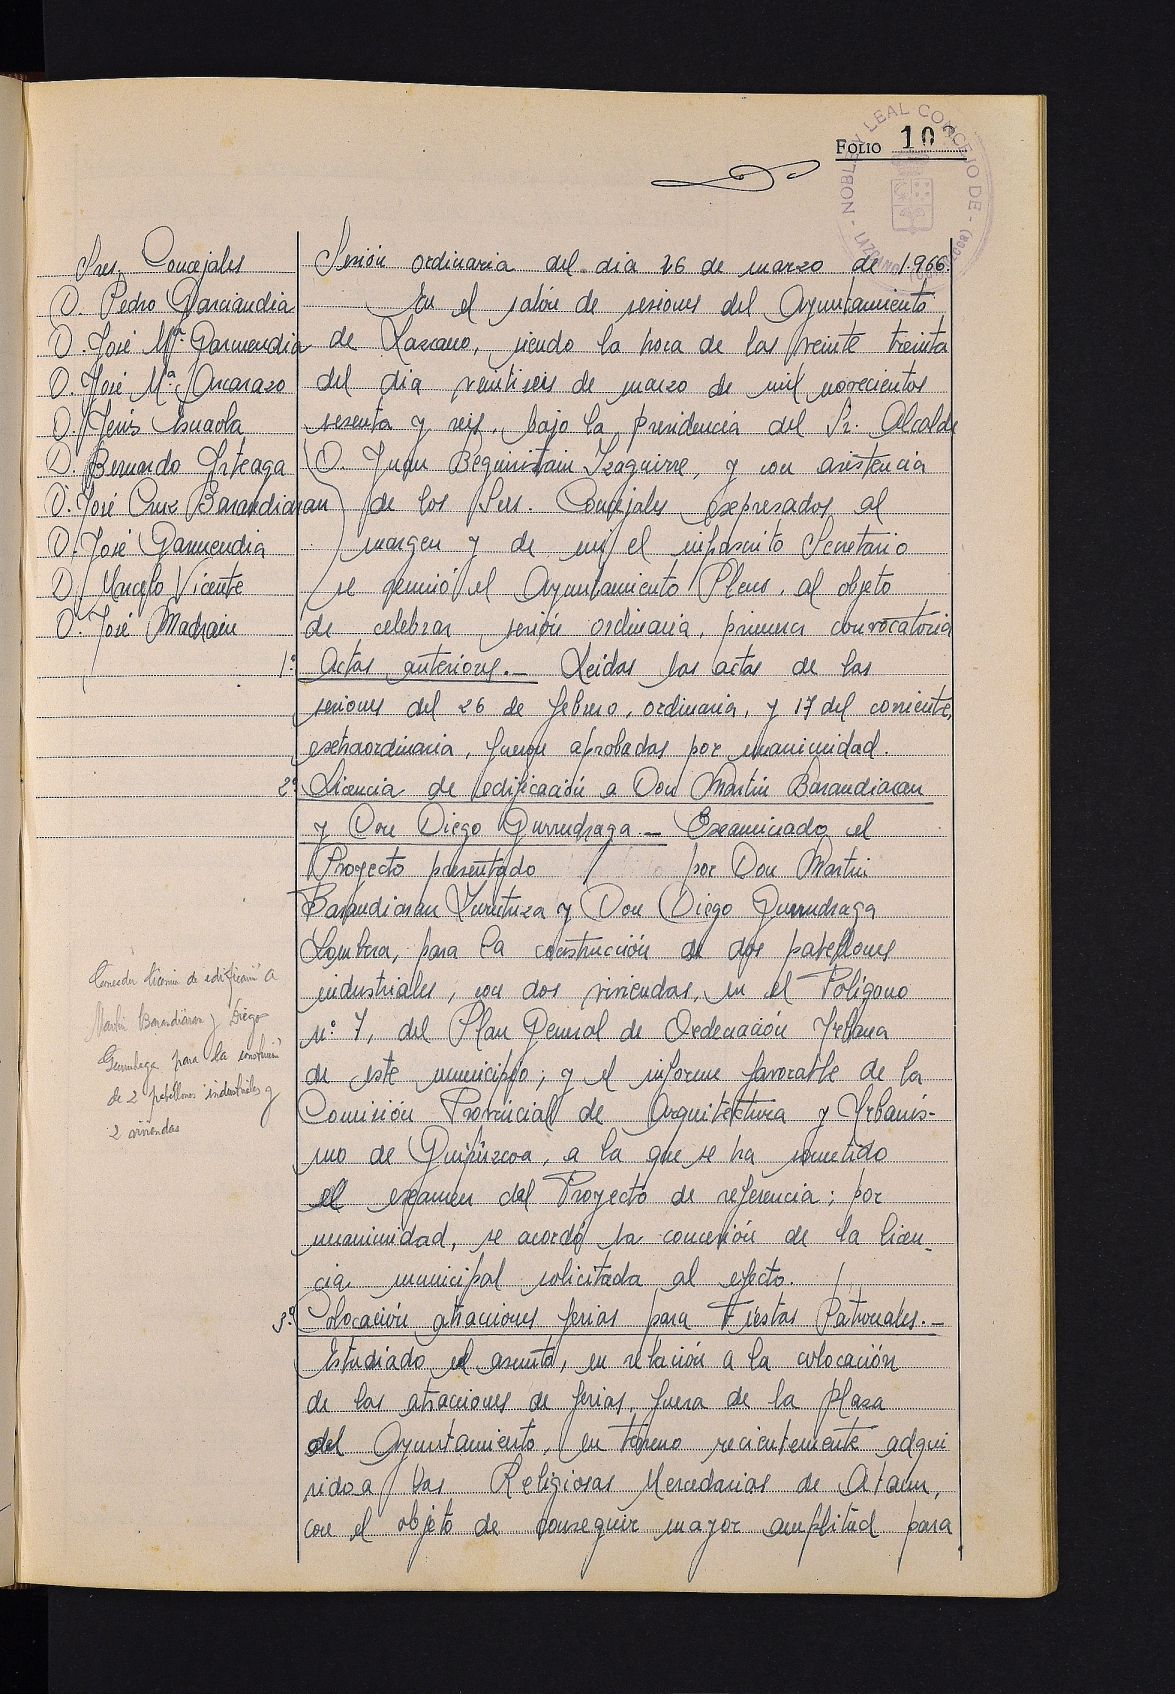 FOLIO 10
NOBLE Y LEAL CONCEJO DE
LAZCANO (GUIPUZCOA)
Sres. Concejales
D. Pedro Garciandia
D. José Mª Garmendia
D. José Mª Apcarazo
D. Jesús Esnaola
D. Bernardo Arteaga
D. José Cruz Barandiaran
D. José Garmendia
D. Marcelo Vicente
D. José Madrain
Sesión ordinaria del dia 26 de marzo de 1966.
En el salón de sesiones del Ayuntamiento
de Lazcano, siendo la hora de las veinte treinta
del dia veintiseis de marzo de mil novecientos
sesenta y seis, bajo la presidencia del Sr. Alcalde
D. Juan Beguiristain Izaguirre, y con asistencia
de los Sres. Concejales expresados al
margen y de mi el infrascrito Secretario
se reunió el Ayuntamiento Pleno, al objeto
de celebrar sesión ordinaria, primera convocatoria
1º Actas anteriores.- Leidas las actas de las
sesiones del 26 de febrero, ordinaria, y 17 del corriente,
extraordinaria, fueron aprobadas por unanimidad.
2º Licencia de edificación a Don Martin Barandiaran
y Don Diego Gurrudhaga.- Examinado el
Proyecto presentado / por Don Martin
Barandiaran Zurutuza y Don Diego Gurrudhaga
Lombera, para la construcción de dos pabellones
industriales, con dos viviendas, en el Poligono
nº 7, del Plan General de Ordenación Urbana
de este municipio; y el informe favorable de la
Comisión Provincial de Arquitectura y Urbanis-
mo de Guipúzcoa, a la que se ha sometido
el examen del Proyecto de referencia; por
unanimidad, se acordó la concesión de la licen-
cia municipal solicitada al efecto. /
Conceder licencia de edificación a
Martin Barandiaran y Diego
para la construcción
de 2 pabellones industriales y
2 viviendas
3º Colocación atracciones ferias para Fiestas Patronales.-
Estudiado el asunto, en relación a la colocación
de las atracciones de ferias, fuera de la plaza
del Ayuntamiento, en terreno recientemente adqui
rido a las Religiosas Mercedarias de Ataun,
con el objeto de conseguir mayor amplitad para